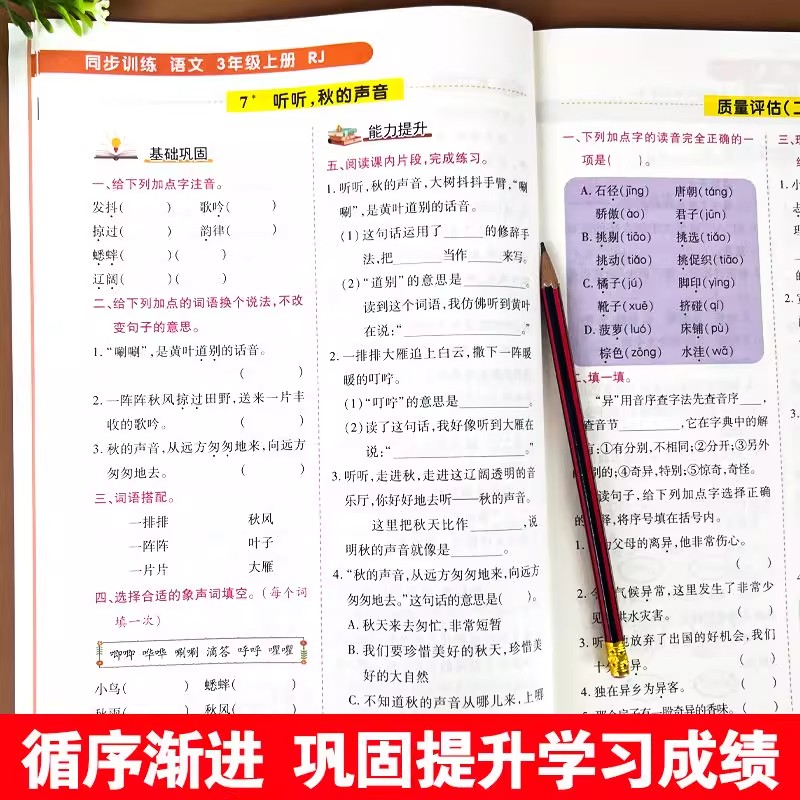 同步训练 语文 3年级上册 RJ
7* 听听,秋的声音
基础巩固
一、给下列加点字注音。
发抖( ) 歌吟( )
掠过( ) 韵律( )
蟋蟀( )( )
辽阔( )( )
二、给下列加点的词语换个说法,不改
变句子的意思。
1. “唰唰”,是黄叶道别的话音。
( )
2. 一阵阵秋风掠过田野,送来一片丰
收的歌吟。 ( )
3. 秋的声音,从远方匆匆地来,向远方
匆匆地去。 ( )
三、词语搭配。
一排排 秋风
一阵阵 叶子
一片片 大雁
四、选择合适的象声词填空。(每个词
填一次)
唧唧 哗哗 唰唰 滴答 呼呼 㘗㘗
小鸟( ) 蟋蟀( )
秋雨( ) 秋风( )
能力提升
五、阅读课内片段,完成练习。
1. 听听,秋的声音,大树抖抖手臂,“唰
唰”,是黄叶道别的话音。
(1)这句话运用了______的修辞手
法,把______当作______来写。
(2)“道别”的意思是________。
读到这个词语,我仿佛听到黄叶
在说:“____________。”
2. 一排排大雁追上白云,撒下一阵暖
暖的叮咛。
(1)“叮咛”的意思是________。
(2)读了这句话,我好像听到大雁在
说:“____________。”
3. 听听,走进秋,走进这辽阔透明的音
乐厅,你好好地去听——秋的声音。
这里把秋天比作______,说
明秋的声音就像是______。
4. “秋的声音,从远方匆匆地来,向远方
匆匆地去。”这句话的意思是( )。
A. 秋天来去匆忙,非常短暂
B. 我们要珍惜美好的秋天,珍惜美
好的大自然
C. 不知道秋的声音从哪儿来,上哪
质量评估(二
一、下列加点字的读音完全正确的一
项是( )。
A. 石径(jīng) 唐朝(táng)
骄傲(ào) 君子(jūn)
B. 挑剔(tiāo) 挑选(tiǎo)
挑动(tiǎo) 挑促织(tiǎo)
C. 橘子(jú) 脚印(yìng)
靴子(xuē) 挤碰(qí)
D. 菠萝(luó) 床铺(pù)
棕色(zōng) 水洼(wā)
二、填一填。
“异”用音序查字法先查音序____,
查音节________,它在字典中的解
有:①有分别,不相同;②分开;③另外
别的;④奇异,特别;⑤惊奇,奇怪。
读句子,给下列加点字选择正确
释,将序号填在括号内。
为父母的离异,他非常伤心。
( )
2. 气候异常,这里发生了非常少
见 洪水灾害。 ( )
3. 听 他放弃了出国的好机会,我们
十 异。 ( )
4. 独在异乡为异客。 ( )
循序渐进 巩固提升学习成绩